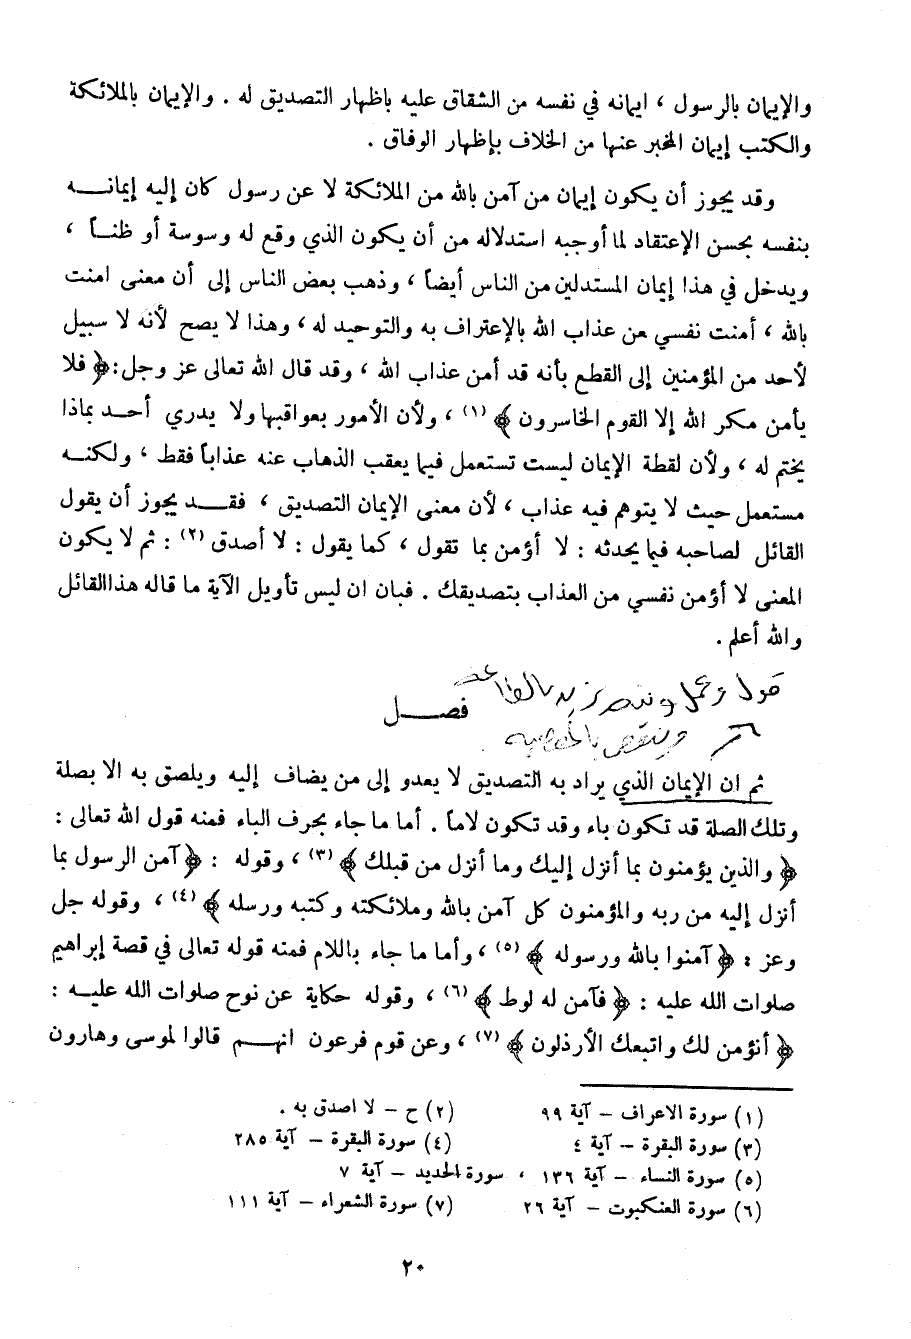 والإيمان بالرسول ، ايمانه في نفسه من الشقاق عليه باظهار التصديق له . والإيمان بالملائكة
والكتب إيمان المخبر عنها من الخلاف بإظهار الوفاق .
وقد يجوز أن يكون إيمان من آمن بالله من الملائكة لا عن رسول كان إليه إيمانــه
بنفسه بحسن الإعتقاد لما أوجبه استدلاله من أن يكون الذي وقع له وسوسة أو ظنــاً ،
ويدخل في هذا إيمان المستدلين من الناس أيضاً ، وذهب بعض الناس إلى أن معنى امنت
بالله ، أمنت نفسي عن عذاب الله بالإعتراف به والتوحيد له ، وهذا لا يصح لأنه لا سبيل
لأحد من المؤمنين إلى القطع بأنه قد أمن عذاب الله ، وقد قال الله تعالى عز وجل: ﴿ فلا
يأمن مكر الله إلا القوم الخاسرون ﴾ (١) ، ولأن الأمور بعواقبها ولا يدري أحــد بماذا
يختم له ، ولأن لقطة الإيمان ليست تستعمل فيما يعقب الذهاب عنه عذاباً فقط ، ولكنــه
مستعمل حيث لا يتوهم فيه عذاب ، لأن معنى الإيمان التصديق ، فقــد يجوز أن يقول
القائل لصاحبه فيما يحدثه : لا أؤمن بما تقول ، كما يقول : لا أصدق (٢) : ثم لا يكون
المعنى لا أؤمن نفسي من العذاب بتصديقك . فبان ان ليس تأويل الآية ما قاله هذا القائل
والله أعلم .
قول وعمل يزيد بالطاعة
فصــل
وينقص بالمعصية
ثم ان الإيمان الذي يراد به التصديق لا يعدو إلى من يضاف إليه ويلصق به الا بصلة
وتلك الصلة قد تكون باء وقد تكون لاماً . أما ما جاء بحرف الباء فمنه قول الله تعالى :
﴿ والذين يؤمنون بما أنزل إليك وما أنزل من قبلك ﴾ (٣) ، وقوله : ﴿ آمن الرسول بما
أنزل إليه من ربه والمؤمنون كل آمن بالله وملائكته وكتبه ورسله ﴾ (٤) ، وقوله جل
وعز : ﴿ آمنوا بالله ورسوله ﴾ (٥) ، وأما ما جاء باللام فمنه قوله تعالى في قصة إبراهيم
صلوات الله عليه : ﴿ فآمن له لوط ﴾ (٦) ، وقوله حكاية عن نوح صلوات الله عليــه :
﴿ أنؤمن لك واتبعك الأرذلون ﴾ (٧) ، وعن قوم فرعون انهــم قالوا لموسى وهارون
(١) سورة الاعراف – آية ٩٩ (٢) ح – لا اصدق به .
(٣) سورة البقرة – آية ٤ (٤) سورة البقرة – آية ٢٨٥
(٥) سورة النساء – آية ١٣٦ ، سورة الحديد – آية ٧
(٦) سورة العنكبوت – آية ٢٦ (٧) سورة الشعراء – آية ١١١
٢٠